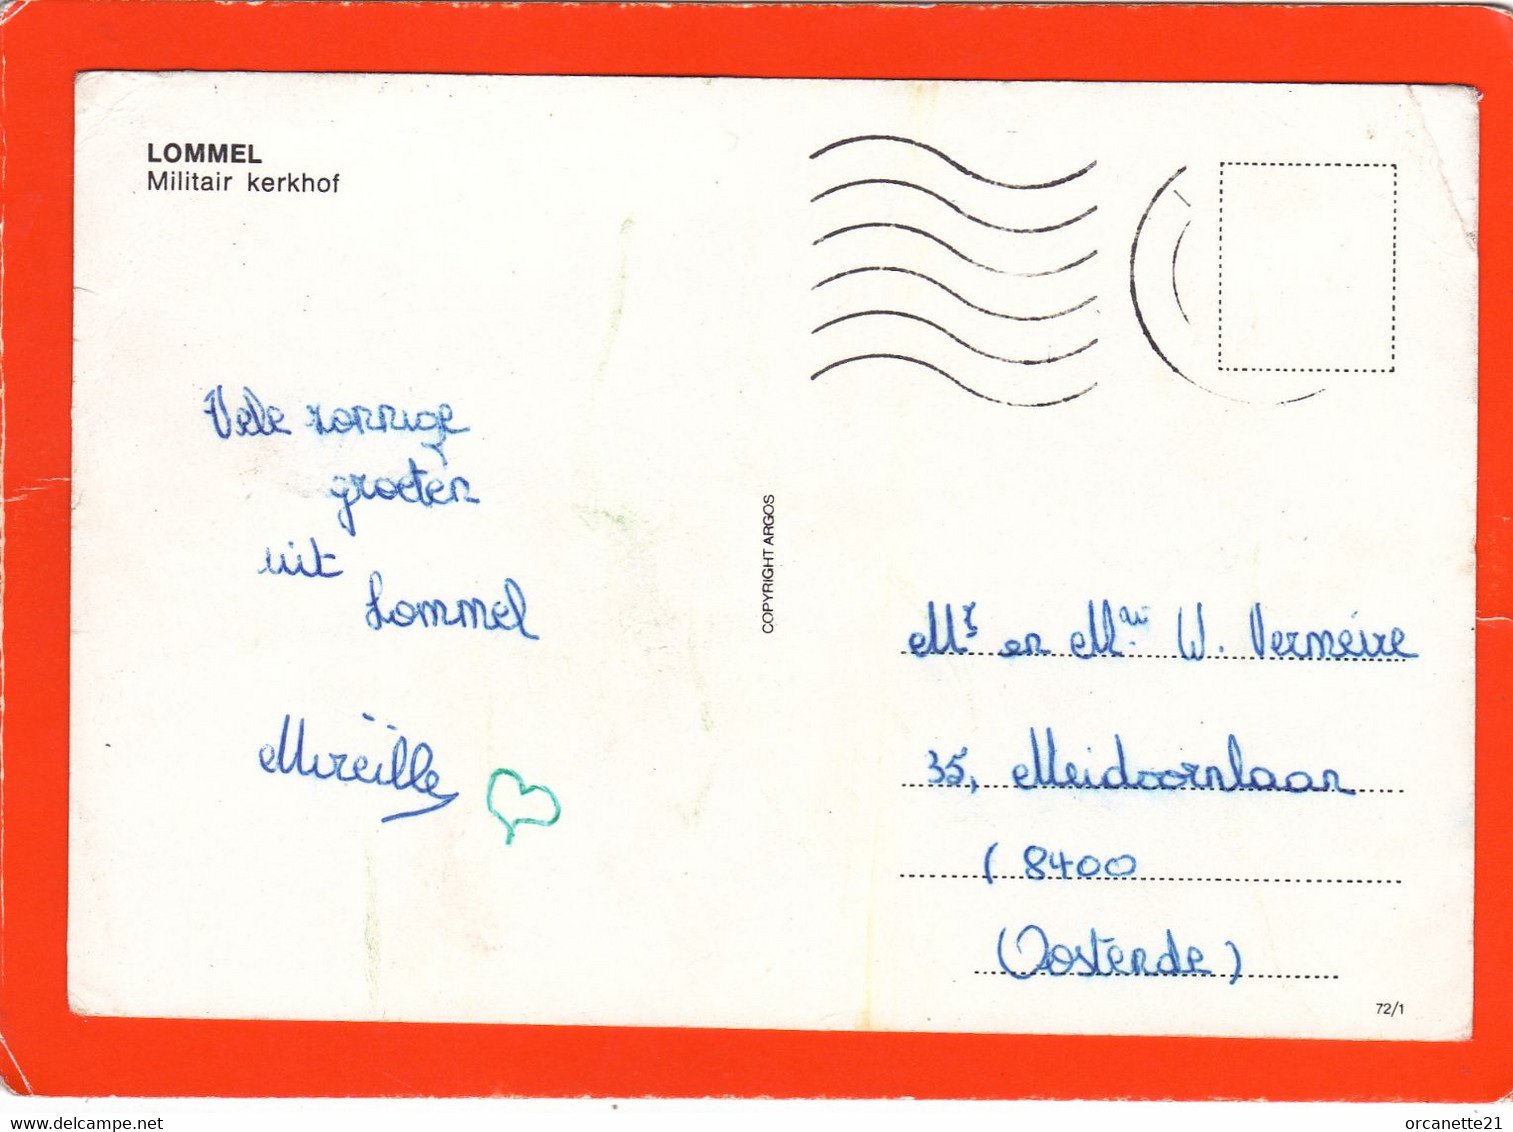 LOMMEL
Militair kerkhof
Vele zonnige
groeten
uit
Lommel
Mireille
COPYRIGHT ARGOS
Mr en Mvw W. Vermeire
35, Meidoornlaan
(8400
(Oostende)
72/1
www.delcampe.net
orcanette21